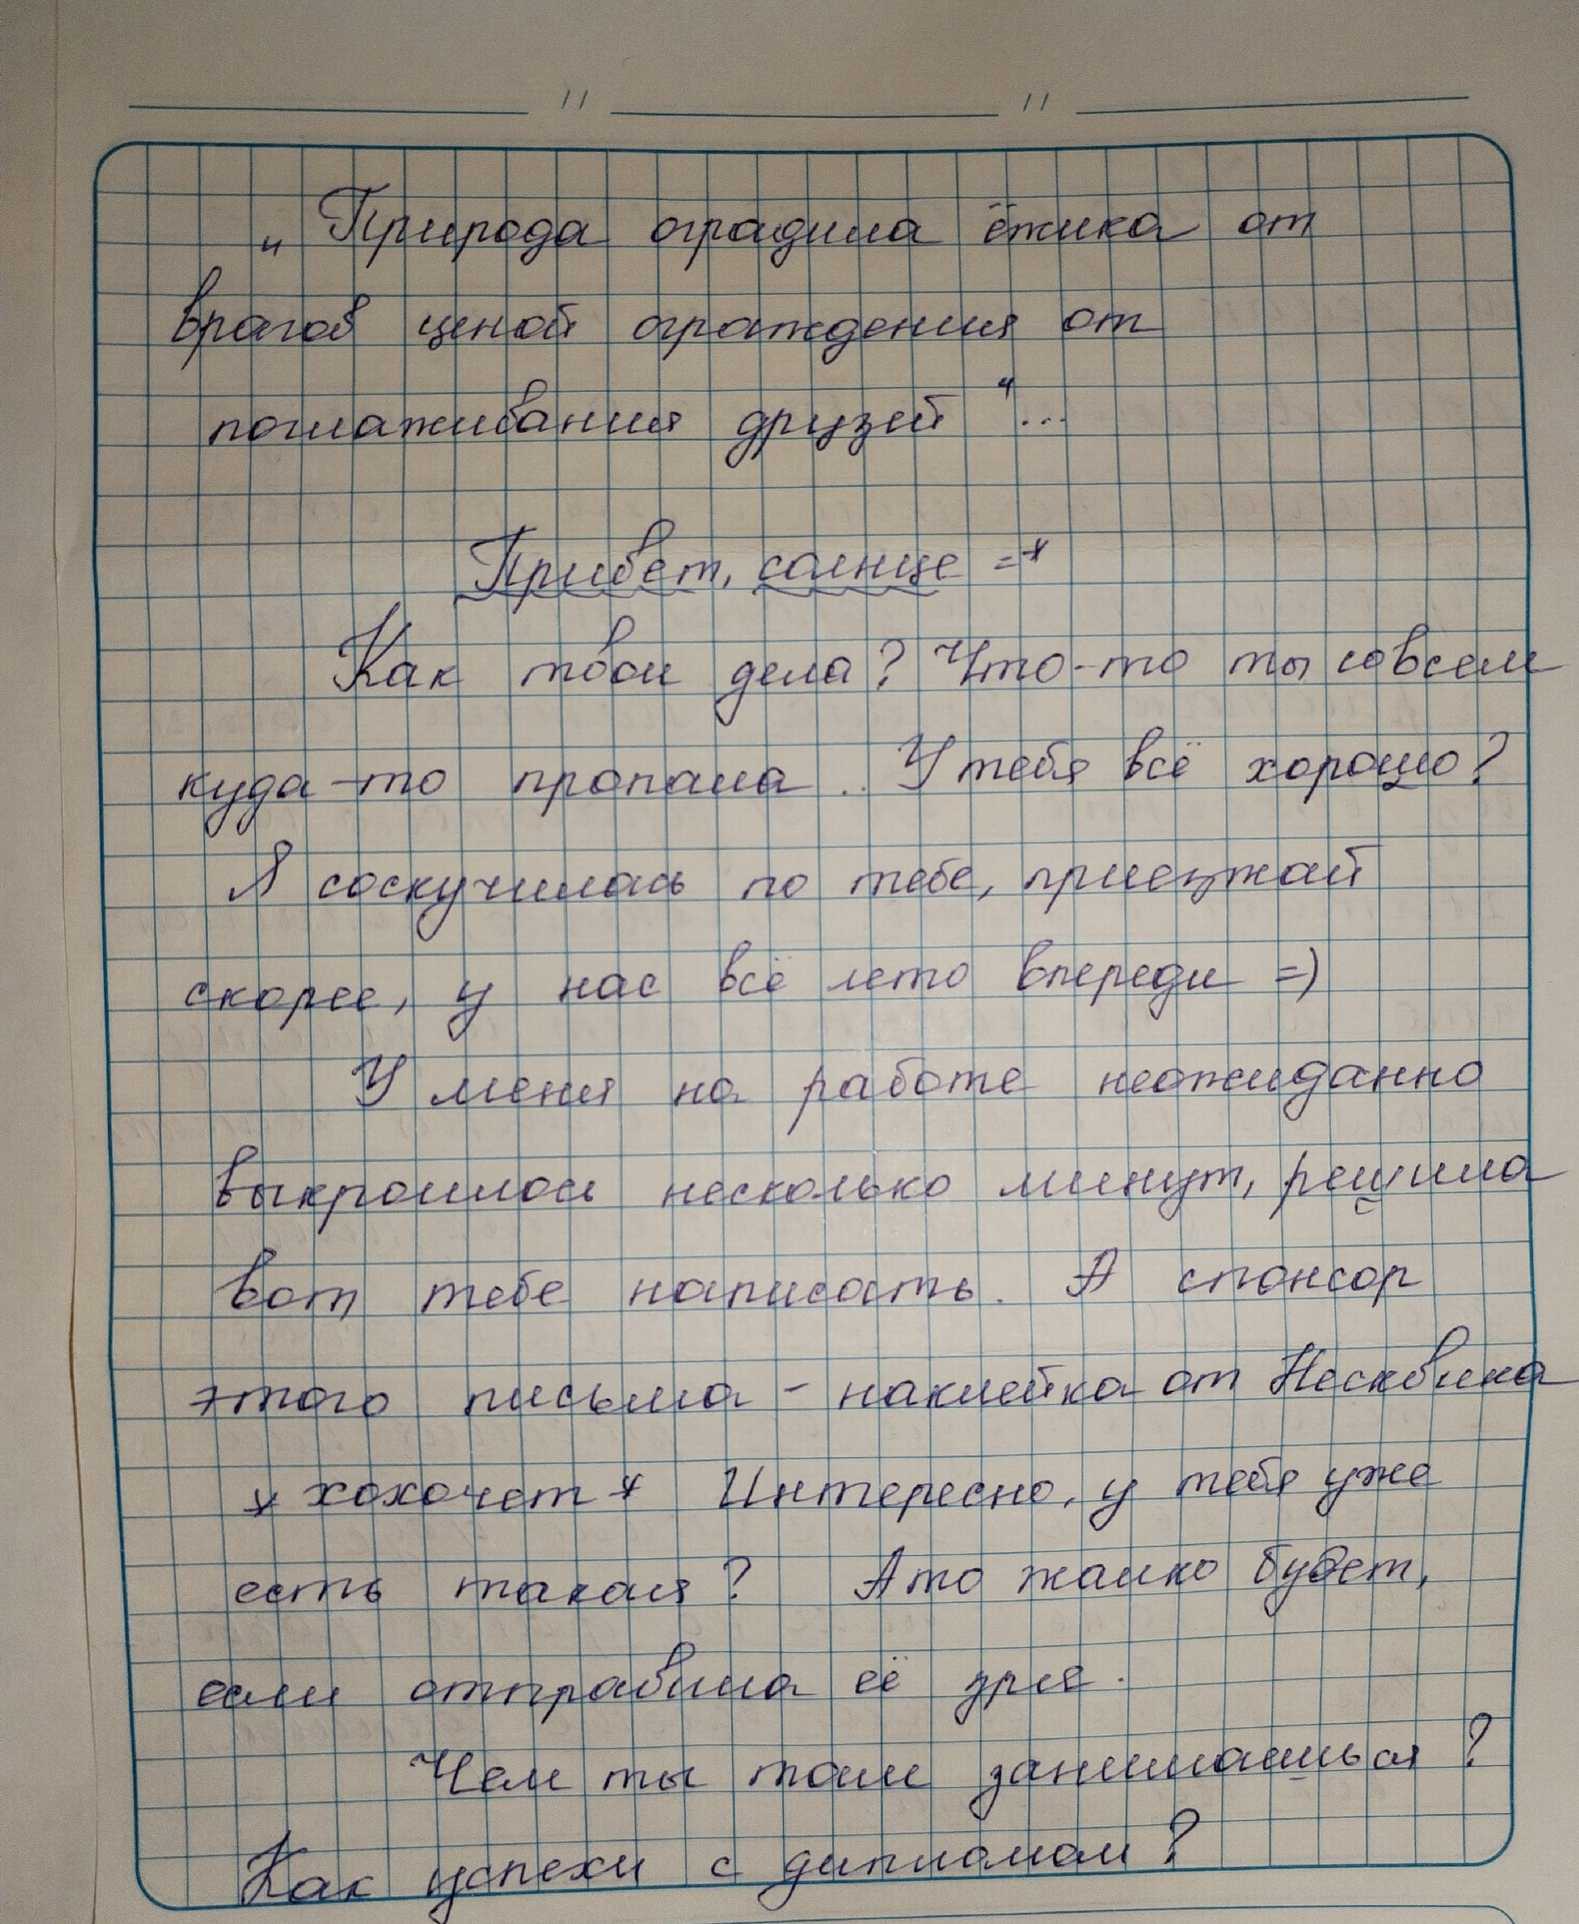 „Природа оградила ёжика от
врагов ценой ограждения от
поглаживания друзей“...
Привет, солнце =*
Как твои дела? Что-то ты совсем
куда-то пропала.. У тебя всё хорошо?
Я соскучилась по тебе, приезжай
скорее, у нас всё лето впереди =)
У меня на работе неожиданно
выкроилось несколько минут, решила
вот тебе написать. А спонсор
этого письма - наклейка от Несквика
*хохочет* Интересно, у тебя уже
есть такая? А то жалко будет,
если отправила её зря.
Чем ты там занимаешься?
Как успехи с дипломом?